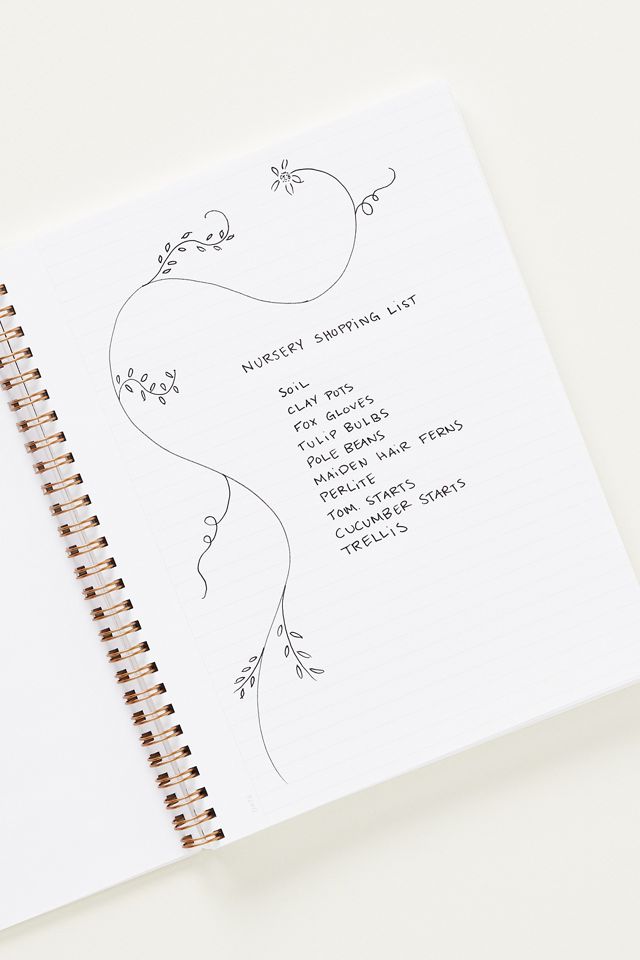 NURSERY SHOPPING LIST
SOiL
CLAY POTS
FOX GLOVES
TULIP BULBS
POLE BEANS
MAiDEN HAiR FERNS
PERLiTE
TOM. STARTS
CUCUMBER STARTS
TRELLiS